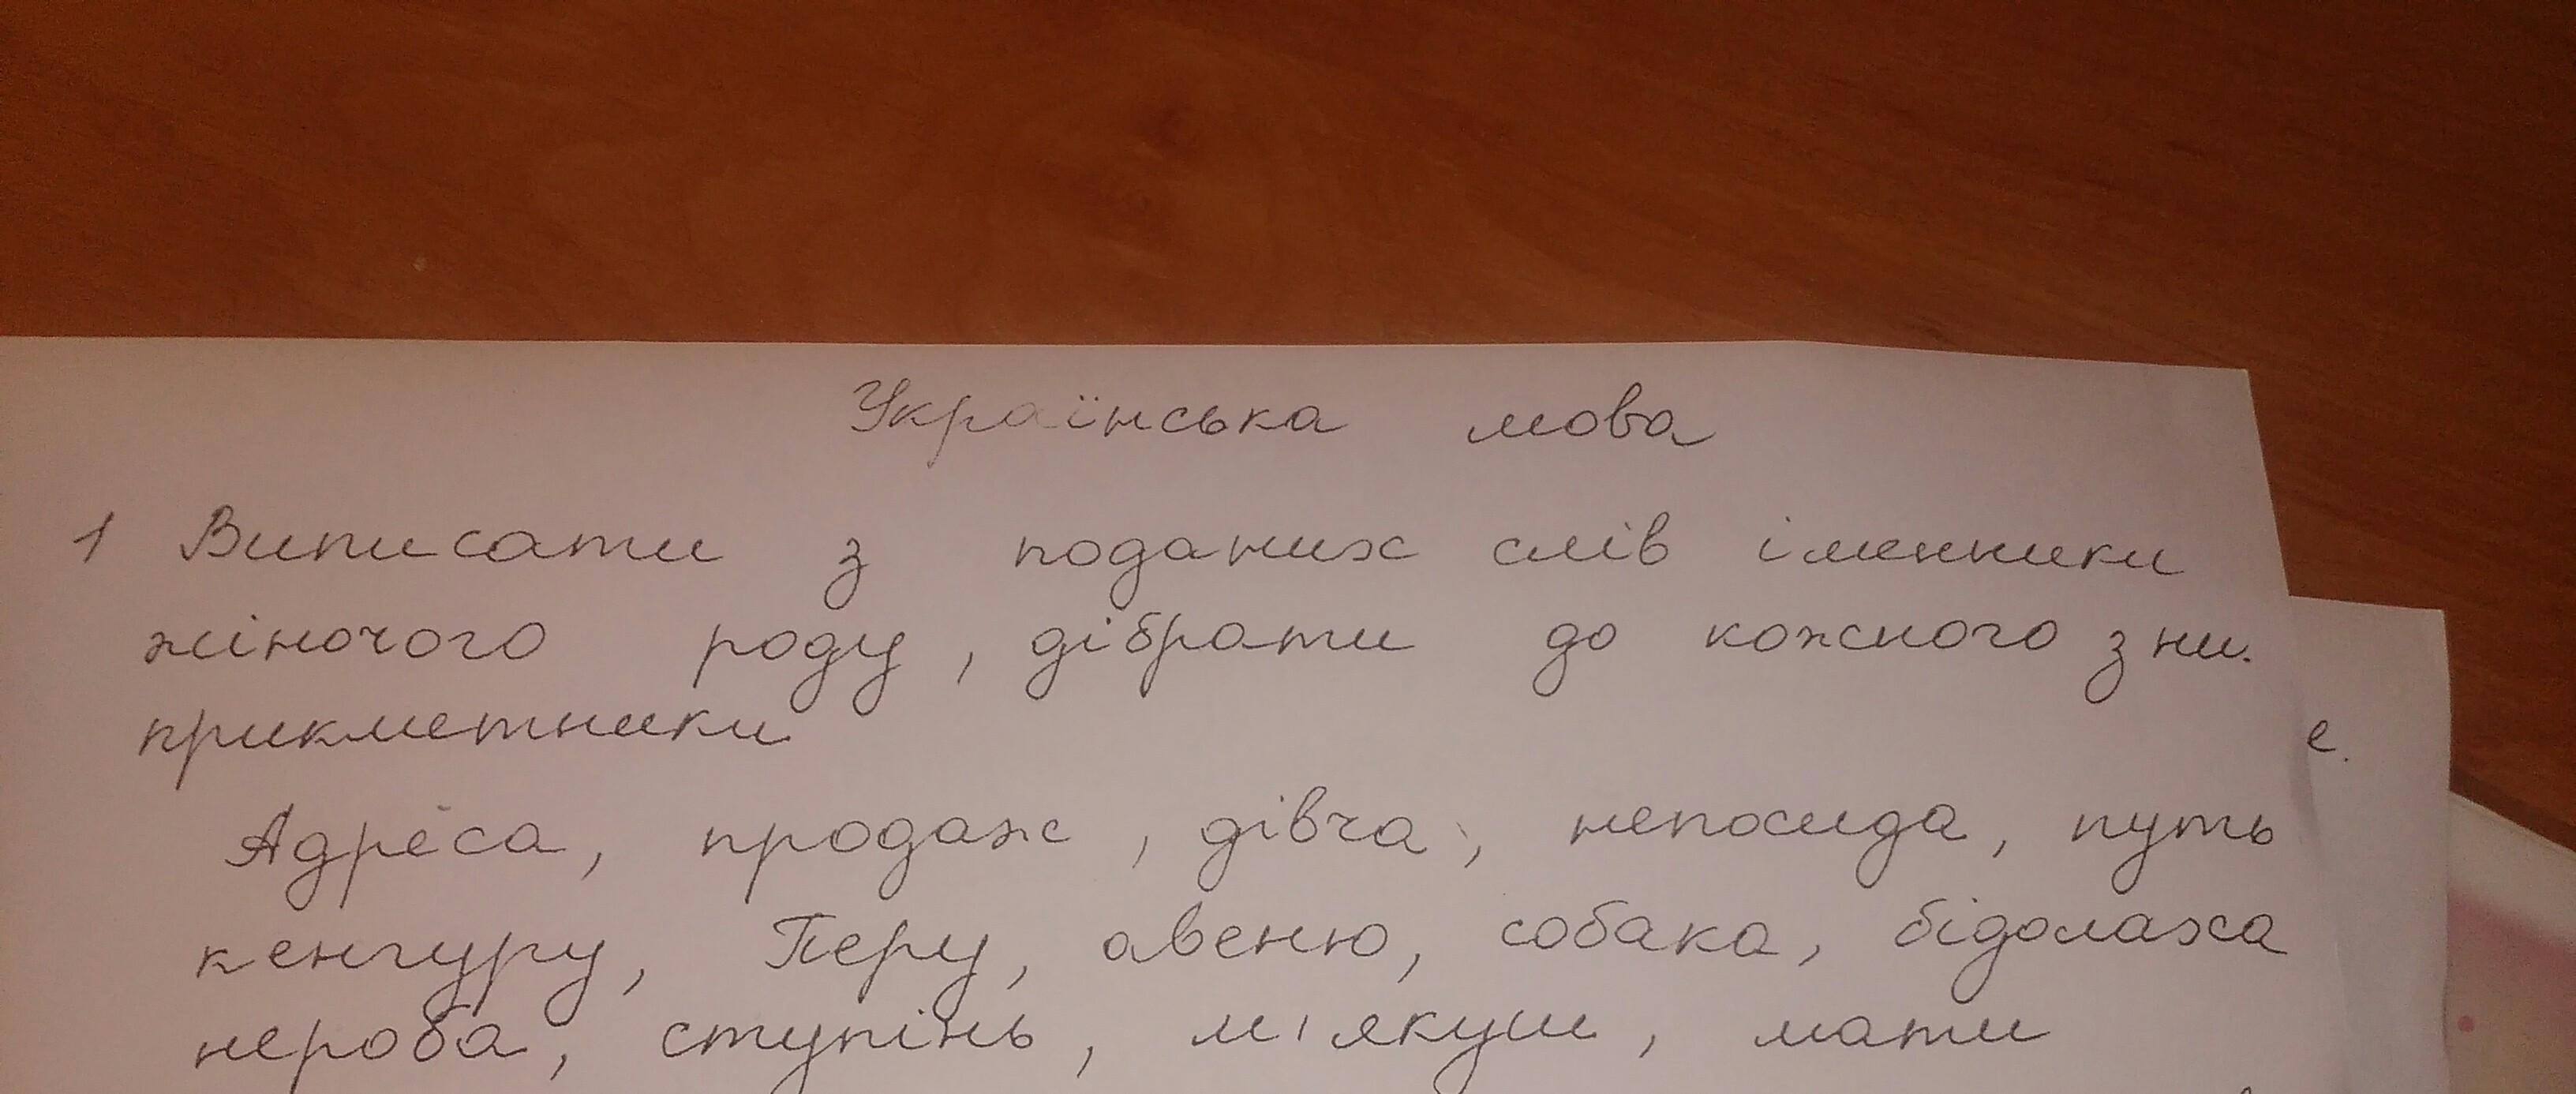 Українська мова
1 Виписати з поданих слів іменники
жіночого роду, дібрати до кожного з ни.
прикметники
е.
Адреса, продаж, дівча, непосида, путь
кенгуру, Перу, авеню, собака, бідолаха
нероба, ступінь, м'якуш, мати